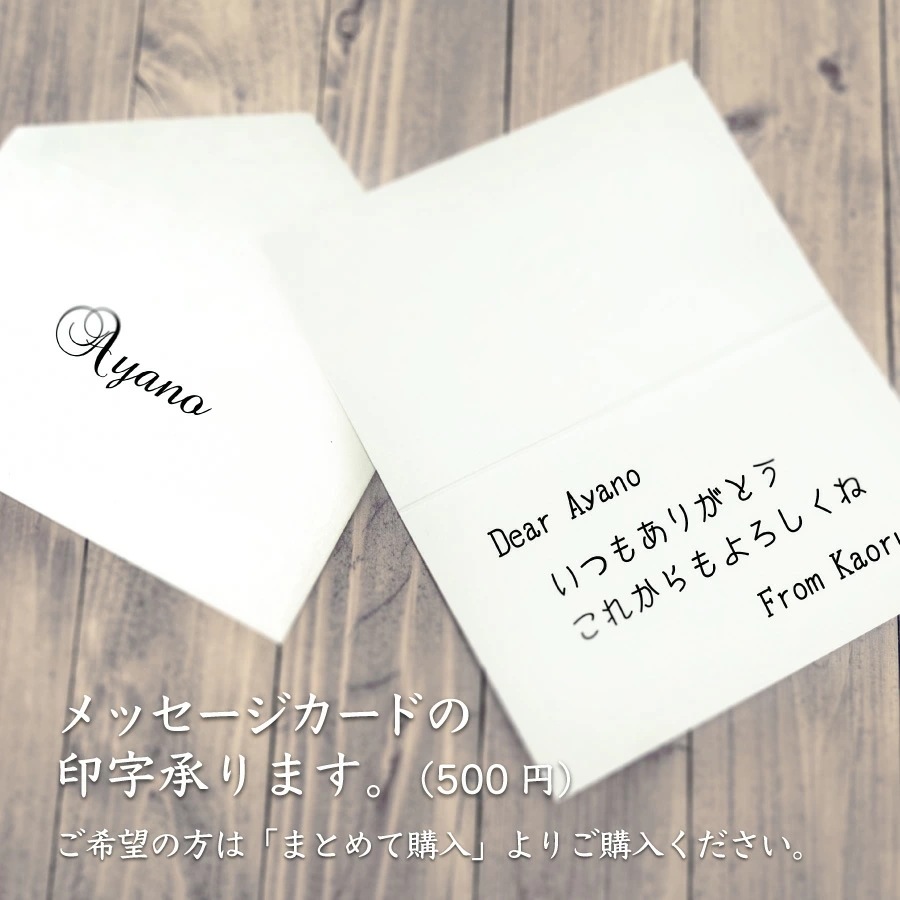 Ayano
Dear Ayano
いつもありがとう
これからもよろしくね
From Kaoru
メッセージカードの
印字承ります。（500 円）
ご希望の方は「まとめて購入」よりご購入ください。